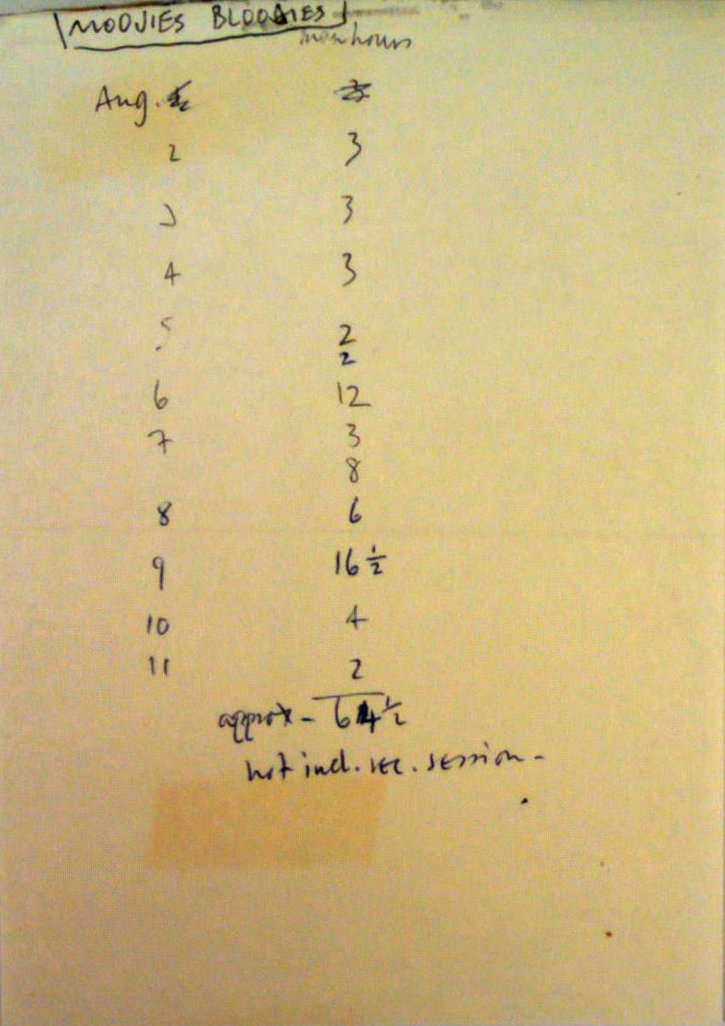 MOOJIES BLOODIES
man hours
Aug.
2 3
3 3
4 3
5 2
2
6 12
7 3
8
8 6
9 16 1/2
10 4
11 2
approx - 64 1/2
not incl. rec. session -